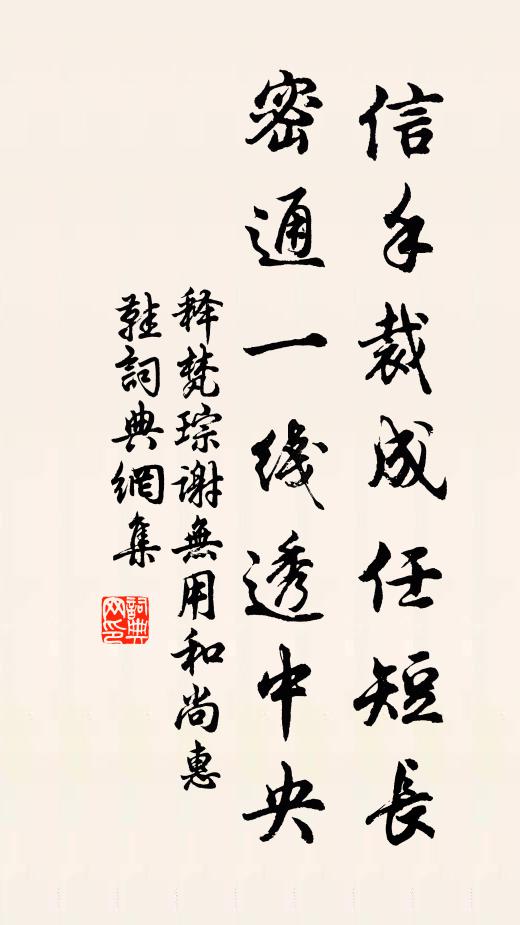 信手裁成任短長
密通一线透中央
释梵琮谢無用和尚惠
鞋詞典網集
詞典网印